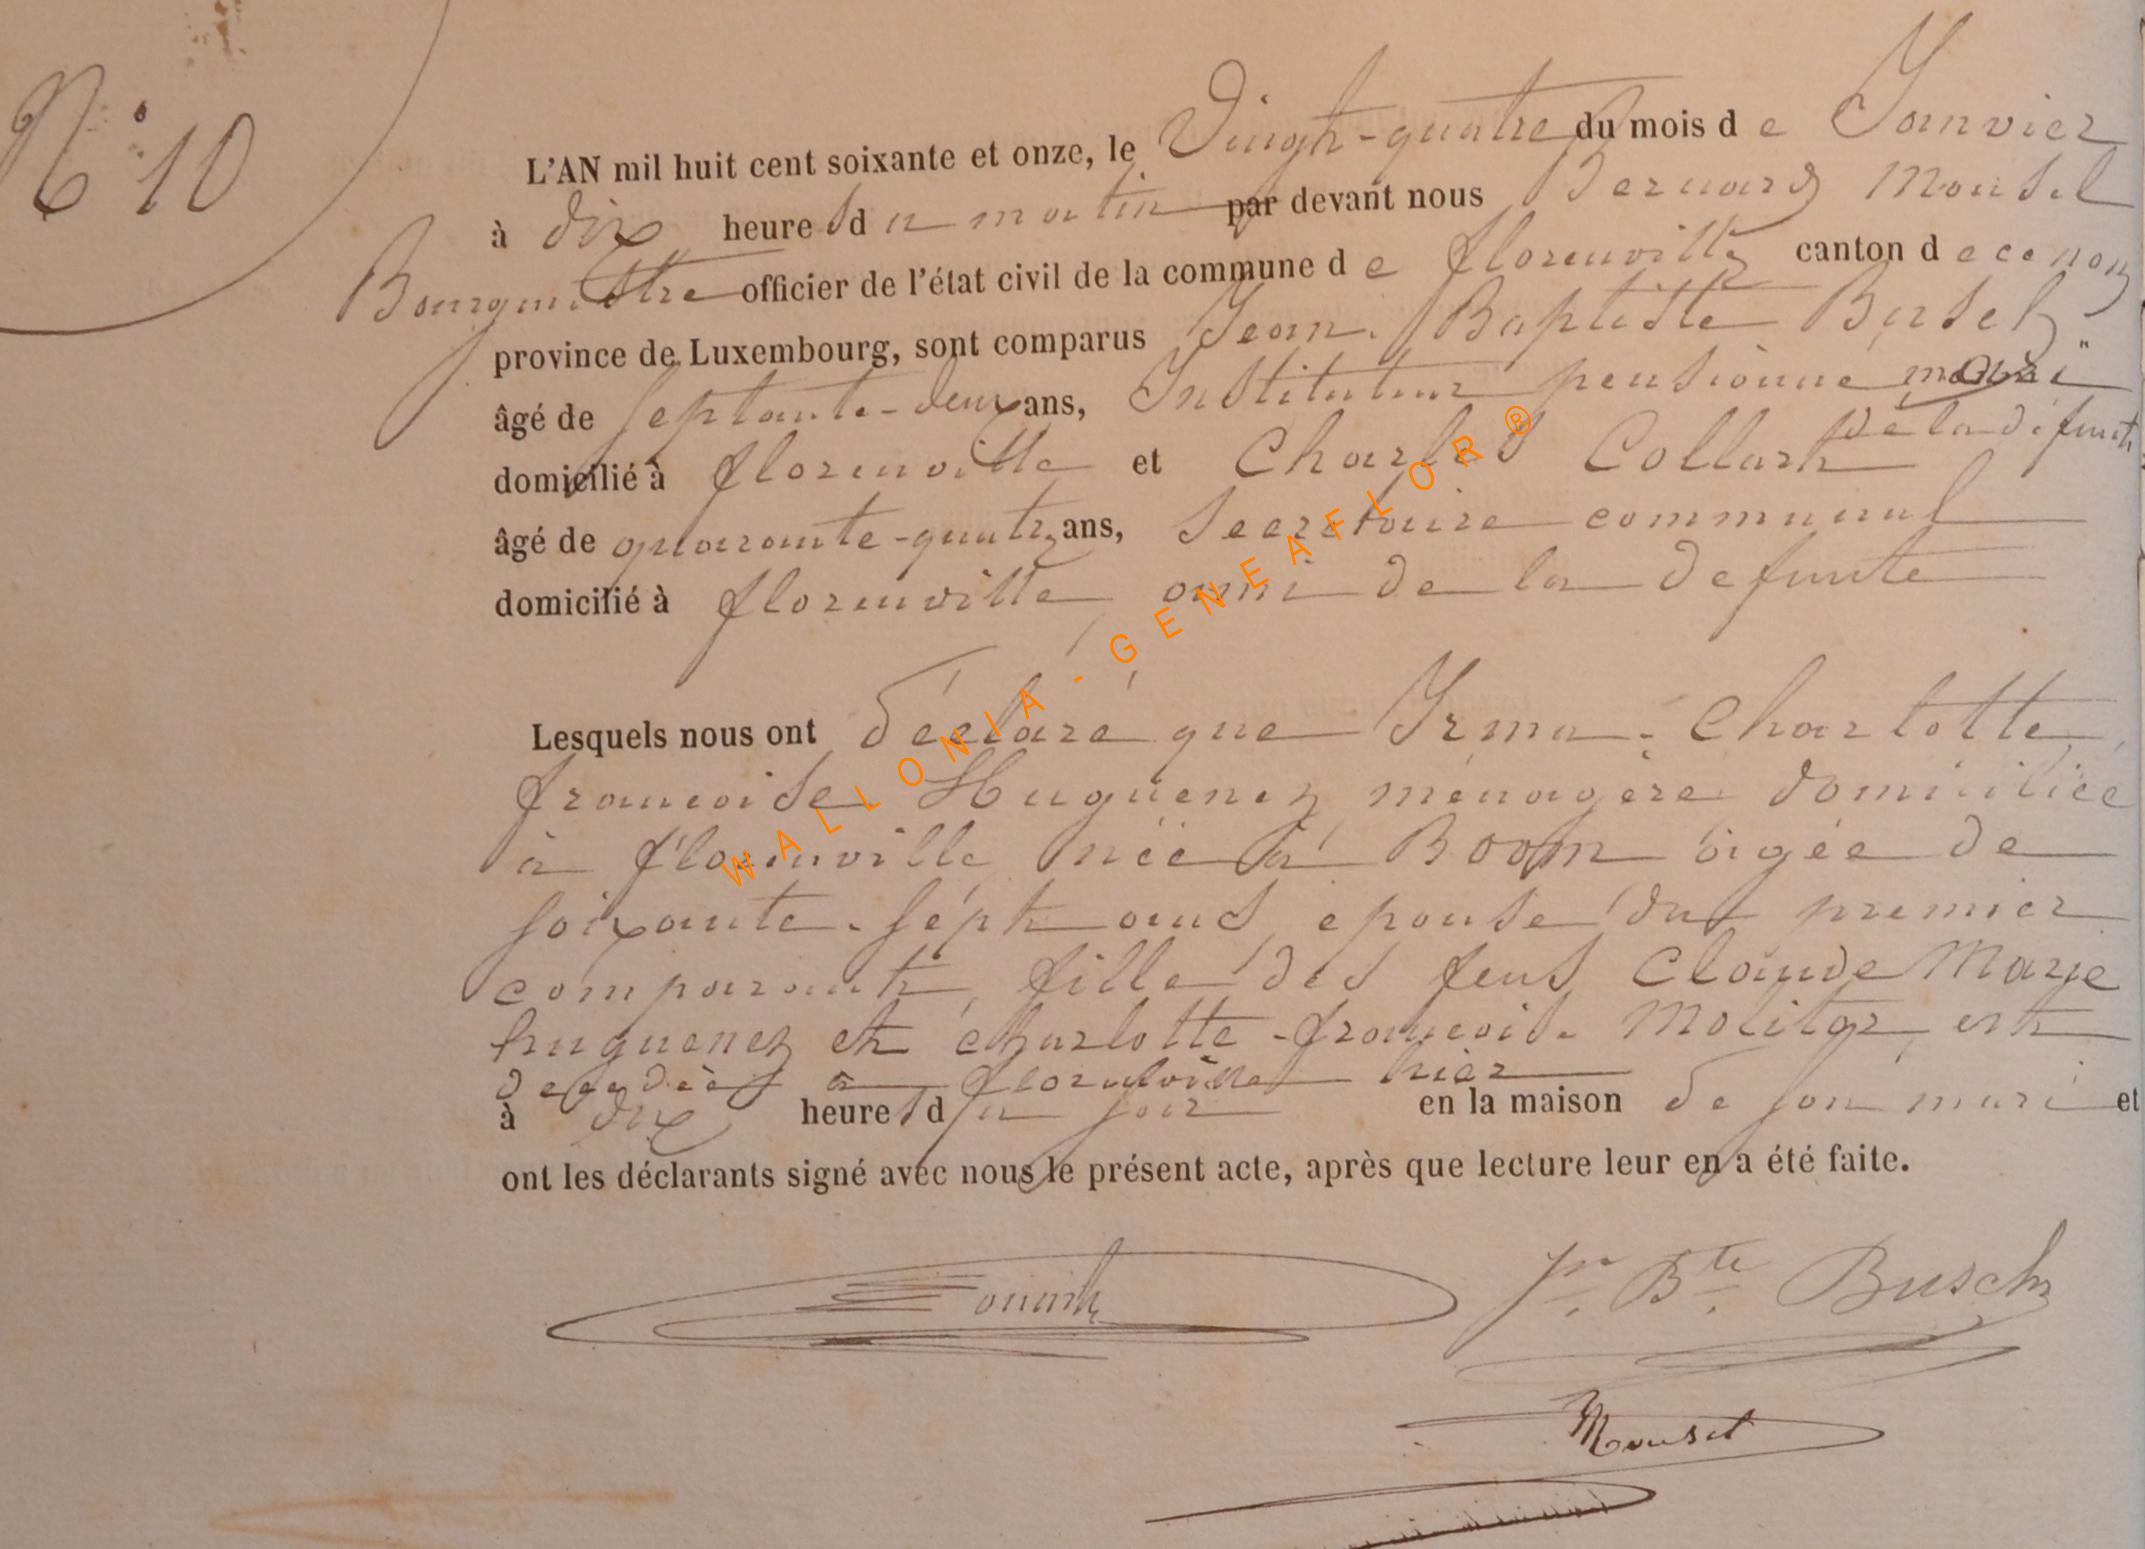 N° 10
L'AN mil huit cent soixante et onze, le Vingt-quatre du mois de Janvier
à dix heures du matin par devant nous Bernard Mousel
Bourgmestre officier de l'état civil de la commune de florenville canton de ce nom
province de Luxembourg, sont comparus Jean Baptiste Busch
âgé de septante-deux ans, Instituteur pensionné mari
de la défunte
domicilié à florenville et Charles Collart
âgé de quarante-quatre ans, Secrétaire communal
domicilié à florenville, ami de la defunte
Lesquels nous ont déclaré que Irma-Charlotte,
francoise Huguenez, ménagère domiciliée
à florenville, née à Boom âgée de
soixante-sept ans, epouse du premier
comparant, fille des feus Claude Marie
huguenez et charlotte-francoise Molitor, est
decedée à florenville hier
à dix heures du soir en la maison de son mari et
ont les déclarants signé avec nous le présent acte, après que lecture leur en a été faite.
Jn Bte Busch
Mousel
WALLONIA-GENEAFLOR®